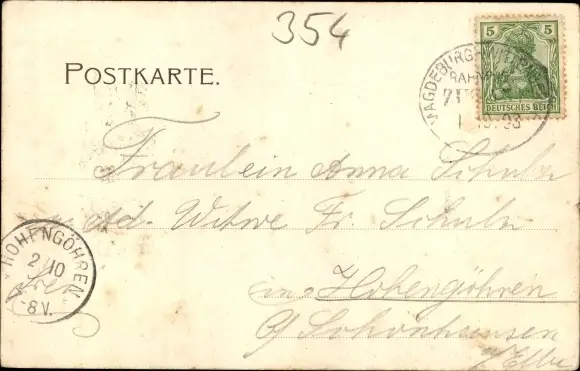 354
POSTKARTE.
5 5
DEUTSCHES REICH
MAGDEBURG
BAHNPOST
ZUG
Fräulein Anna Schulz
ad. Witwe Fr. Schulz
in Hohengöhren
b/ Schönhausen
a/ Elbe
HOHENGÖHREN
2/10
-8 V.